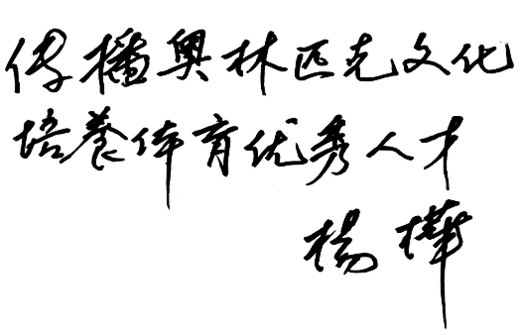 传播奥林匹克文化
培養体育优秀人才
杨桦